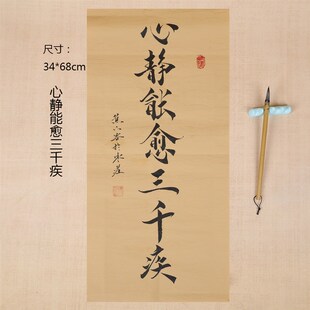 尺寸：
34*68cm
心静能愈三千疾
心静能愈三千疾